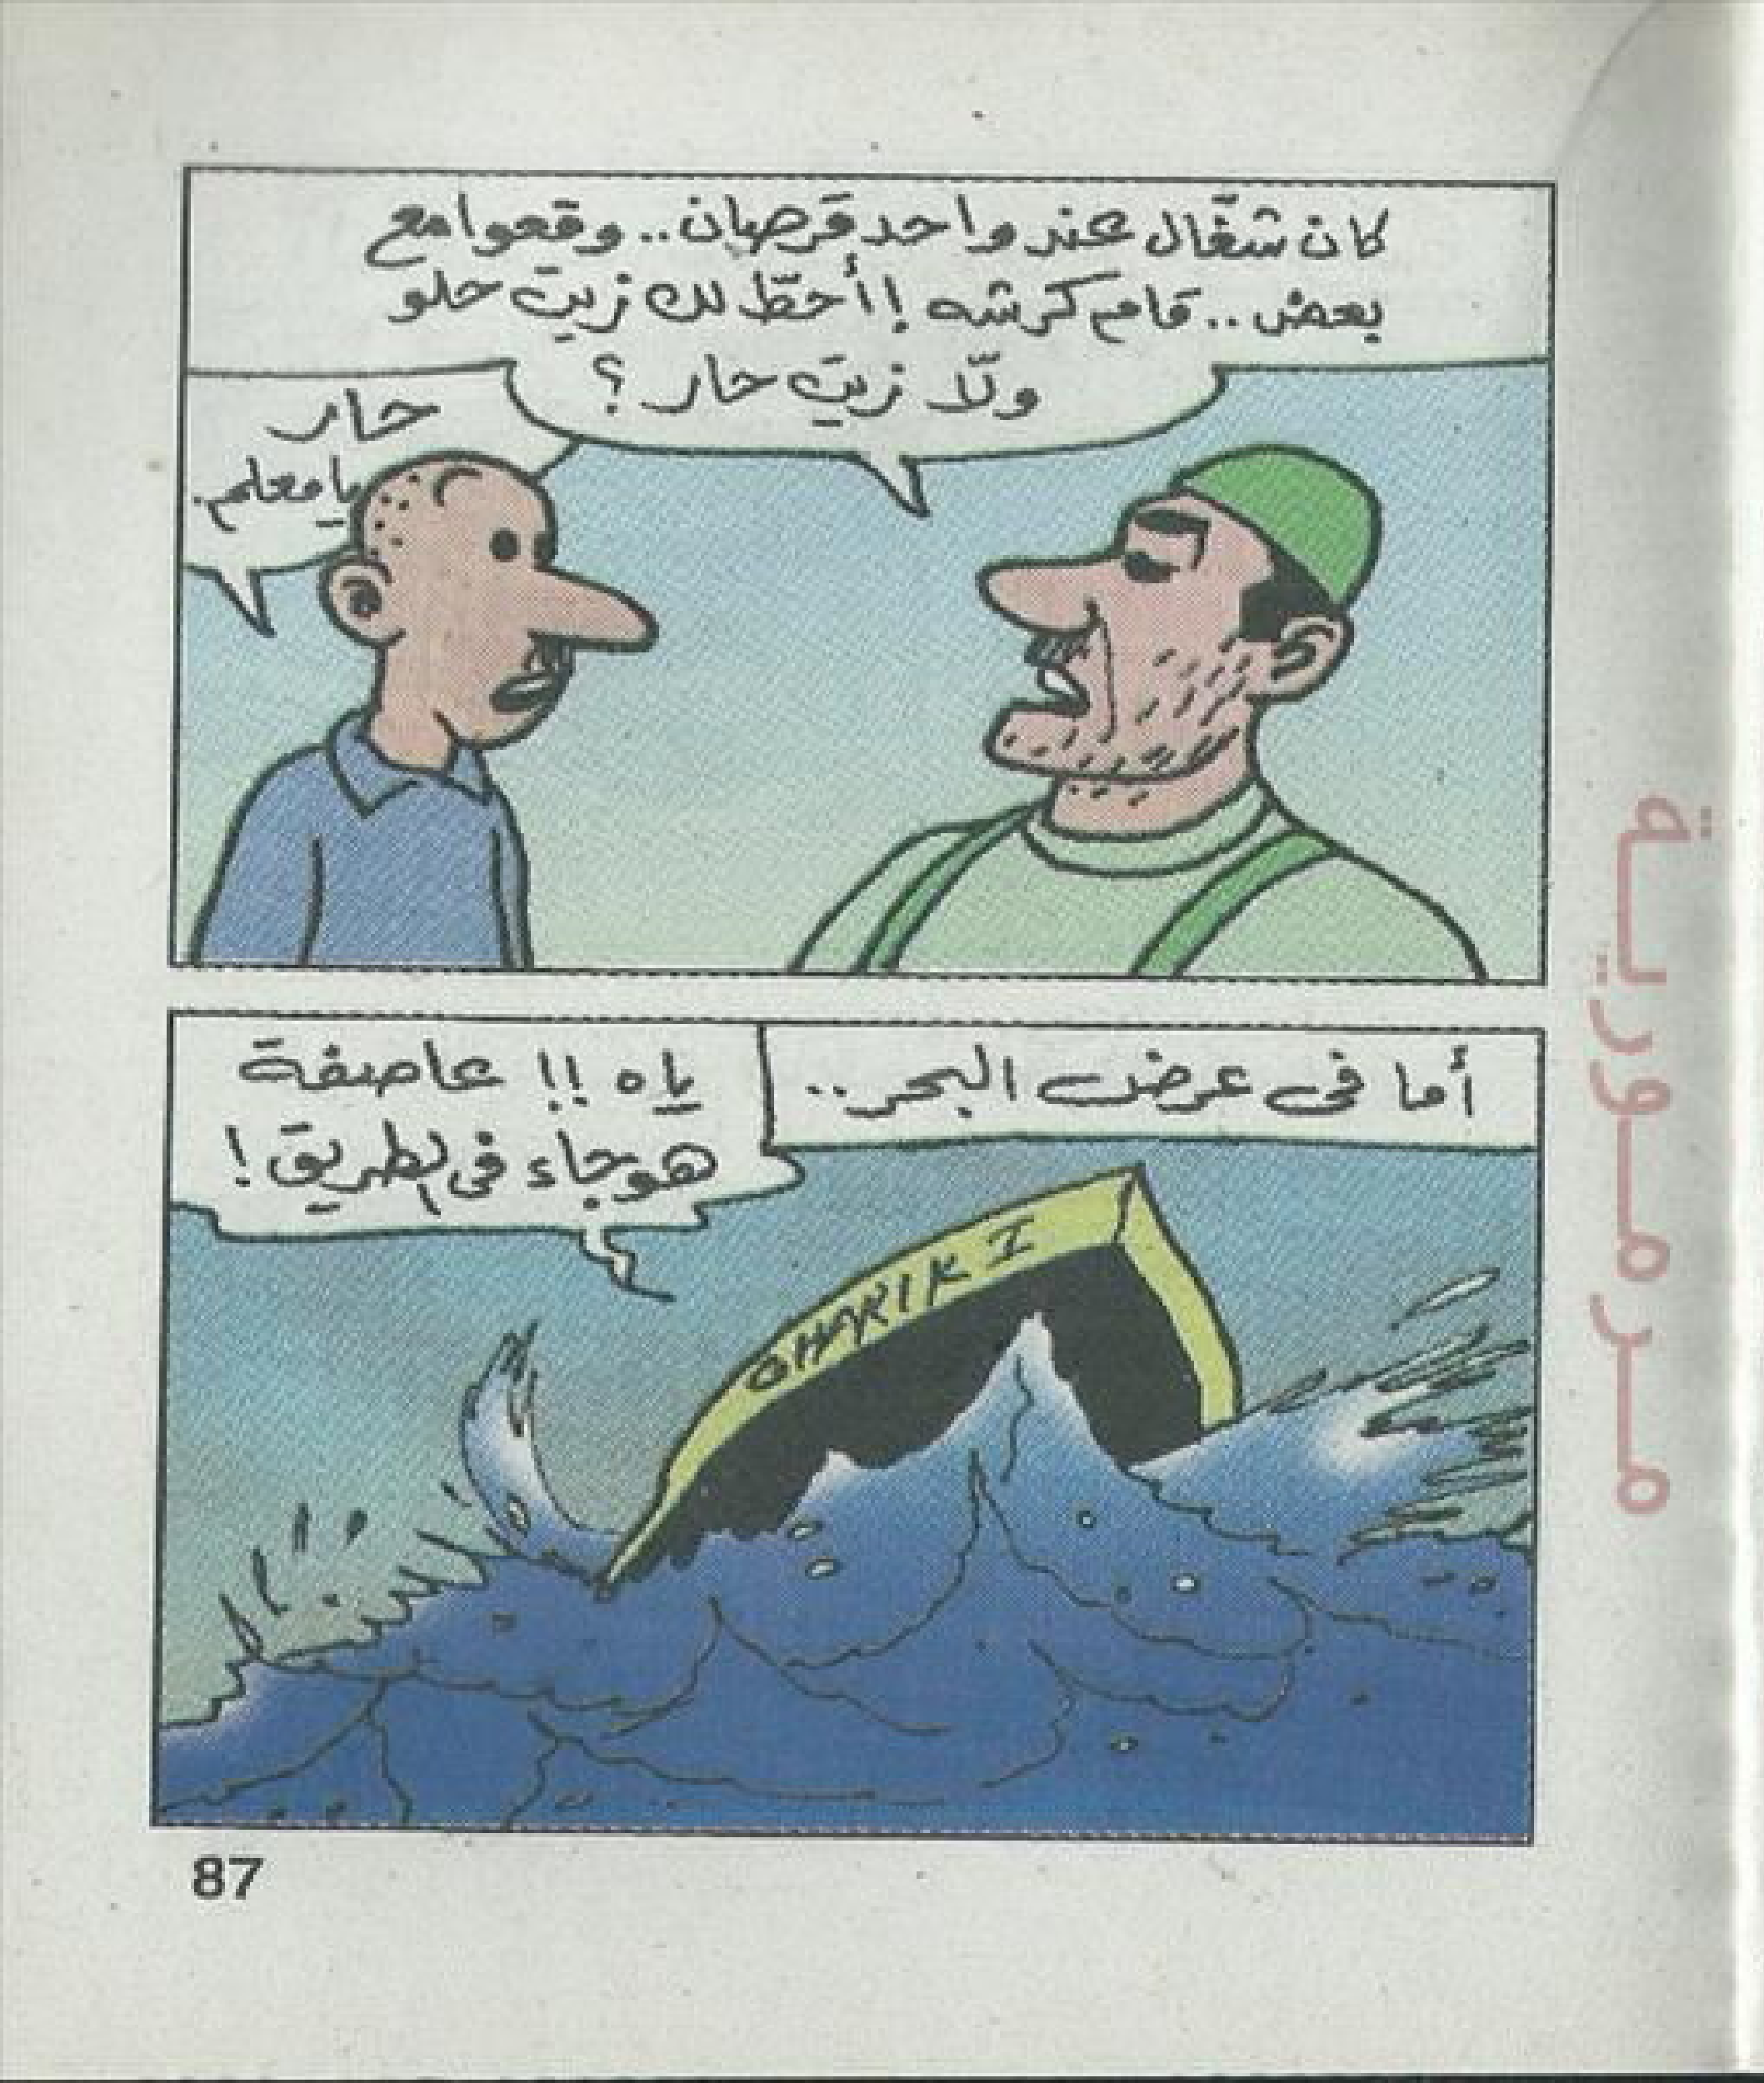 كان شغّال عند واحد قرصان.. وقعوا مع
بعض.. قام كرشه ! أحطّ لك زيت حلو
ولّا زيت حار ؟
حار
يا معلم.
أما فى عرض البحر..
ياه !! عاصفة
هوجاء فى الطريق !
GHARIK I
87
مرمورية